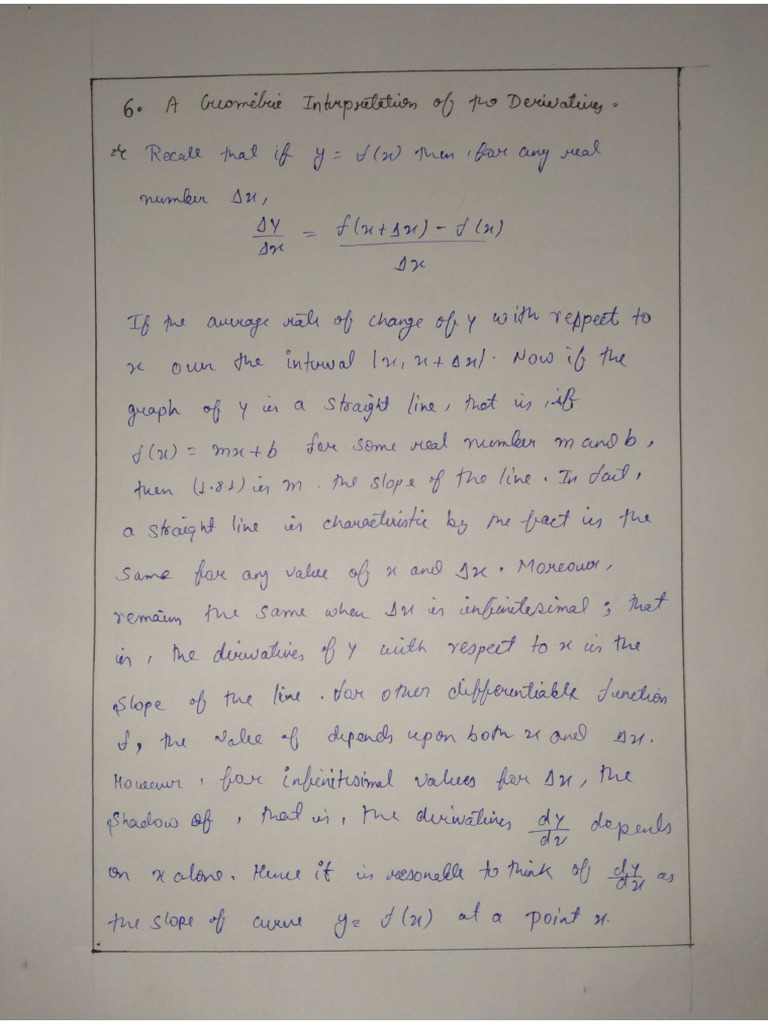 6. A Geometric Interpretation of the Derivatives.
* Recall that if y = f(x) then, for any real
number Δx,
ΔY/Δx = f(x+Δx) - f(x)/Δx
If the average rate of change of y with respect to
x over the interval |x, x+Δx|. Now if the
graph of y is a straight line, that is, if
f(x) = mx+b for some real number m and b,
then (1.81) is m. the slope of the line. In fact,
a straight line is characteristic by the fact is the
same for any value of x and Δx. Moreover,
remains the same when Δx is infinitesimal; that
is, the derivatives of y with respect to x is the
slope of the line. for other differentiable function
f, the value of depends upon both x and Δx.
However, for infinitesimal values for Δx, the
shadow of, that is, the derivatives dy/dx depends
on x alone. Hence it is reasonable to think of dy/dx as
the slope of curve y= f(x) at a point x.